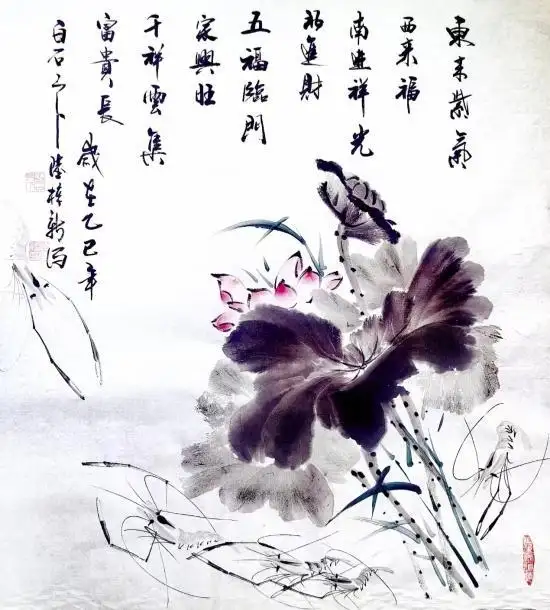 東来紫氣
西来福
南進祥光
北進財
五福臨門
家興旺
千祥雲集
富貴長
歲在乙巳年
白石之卜陸桂新写